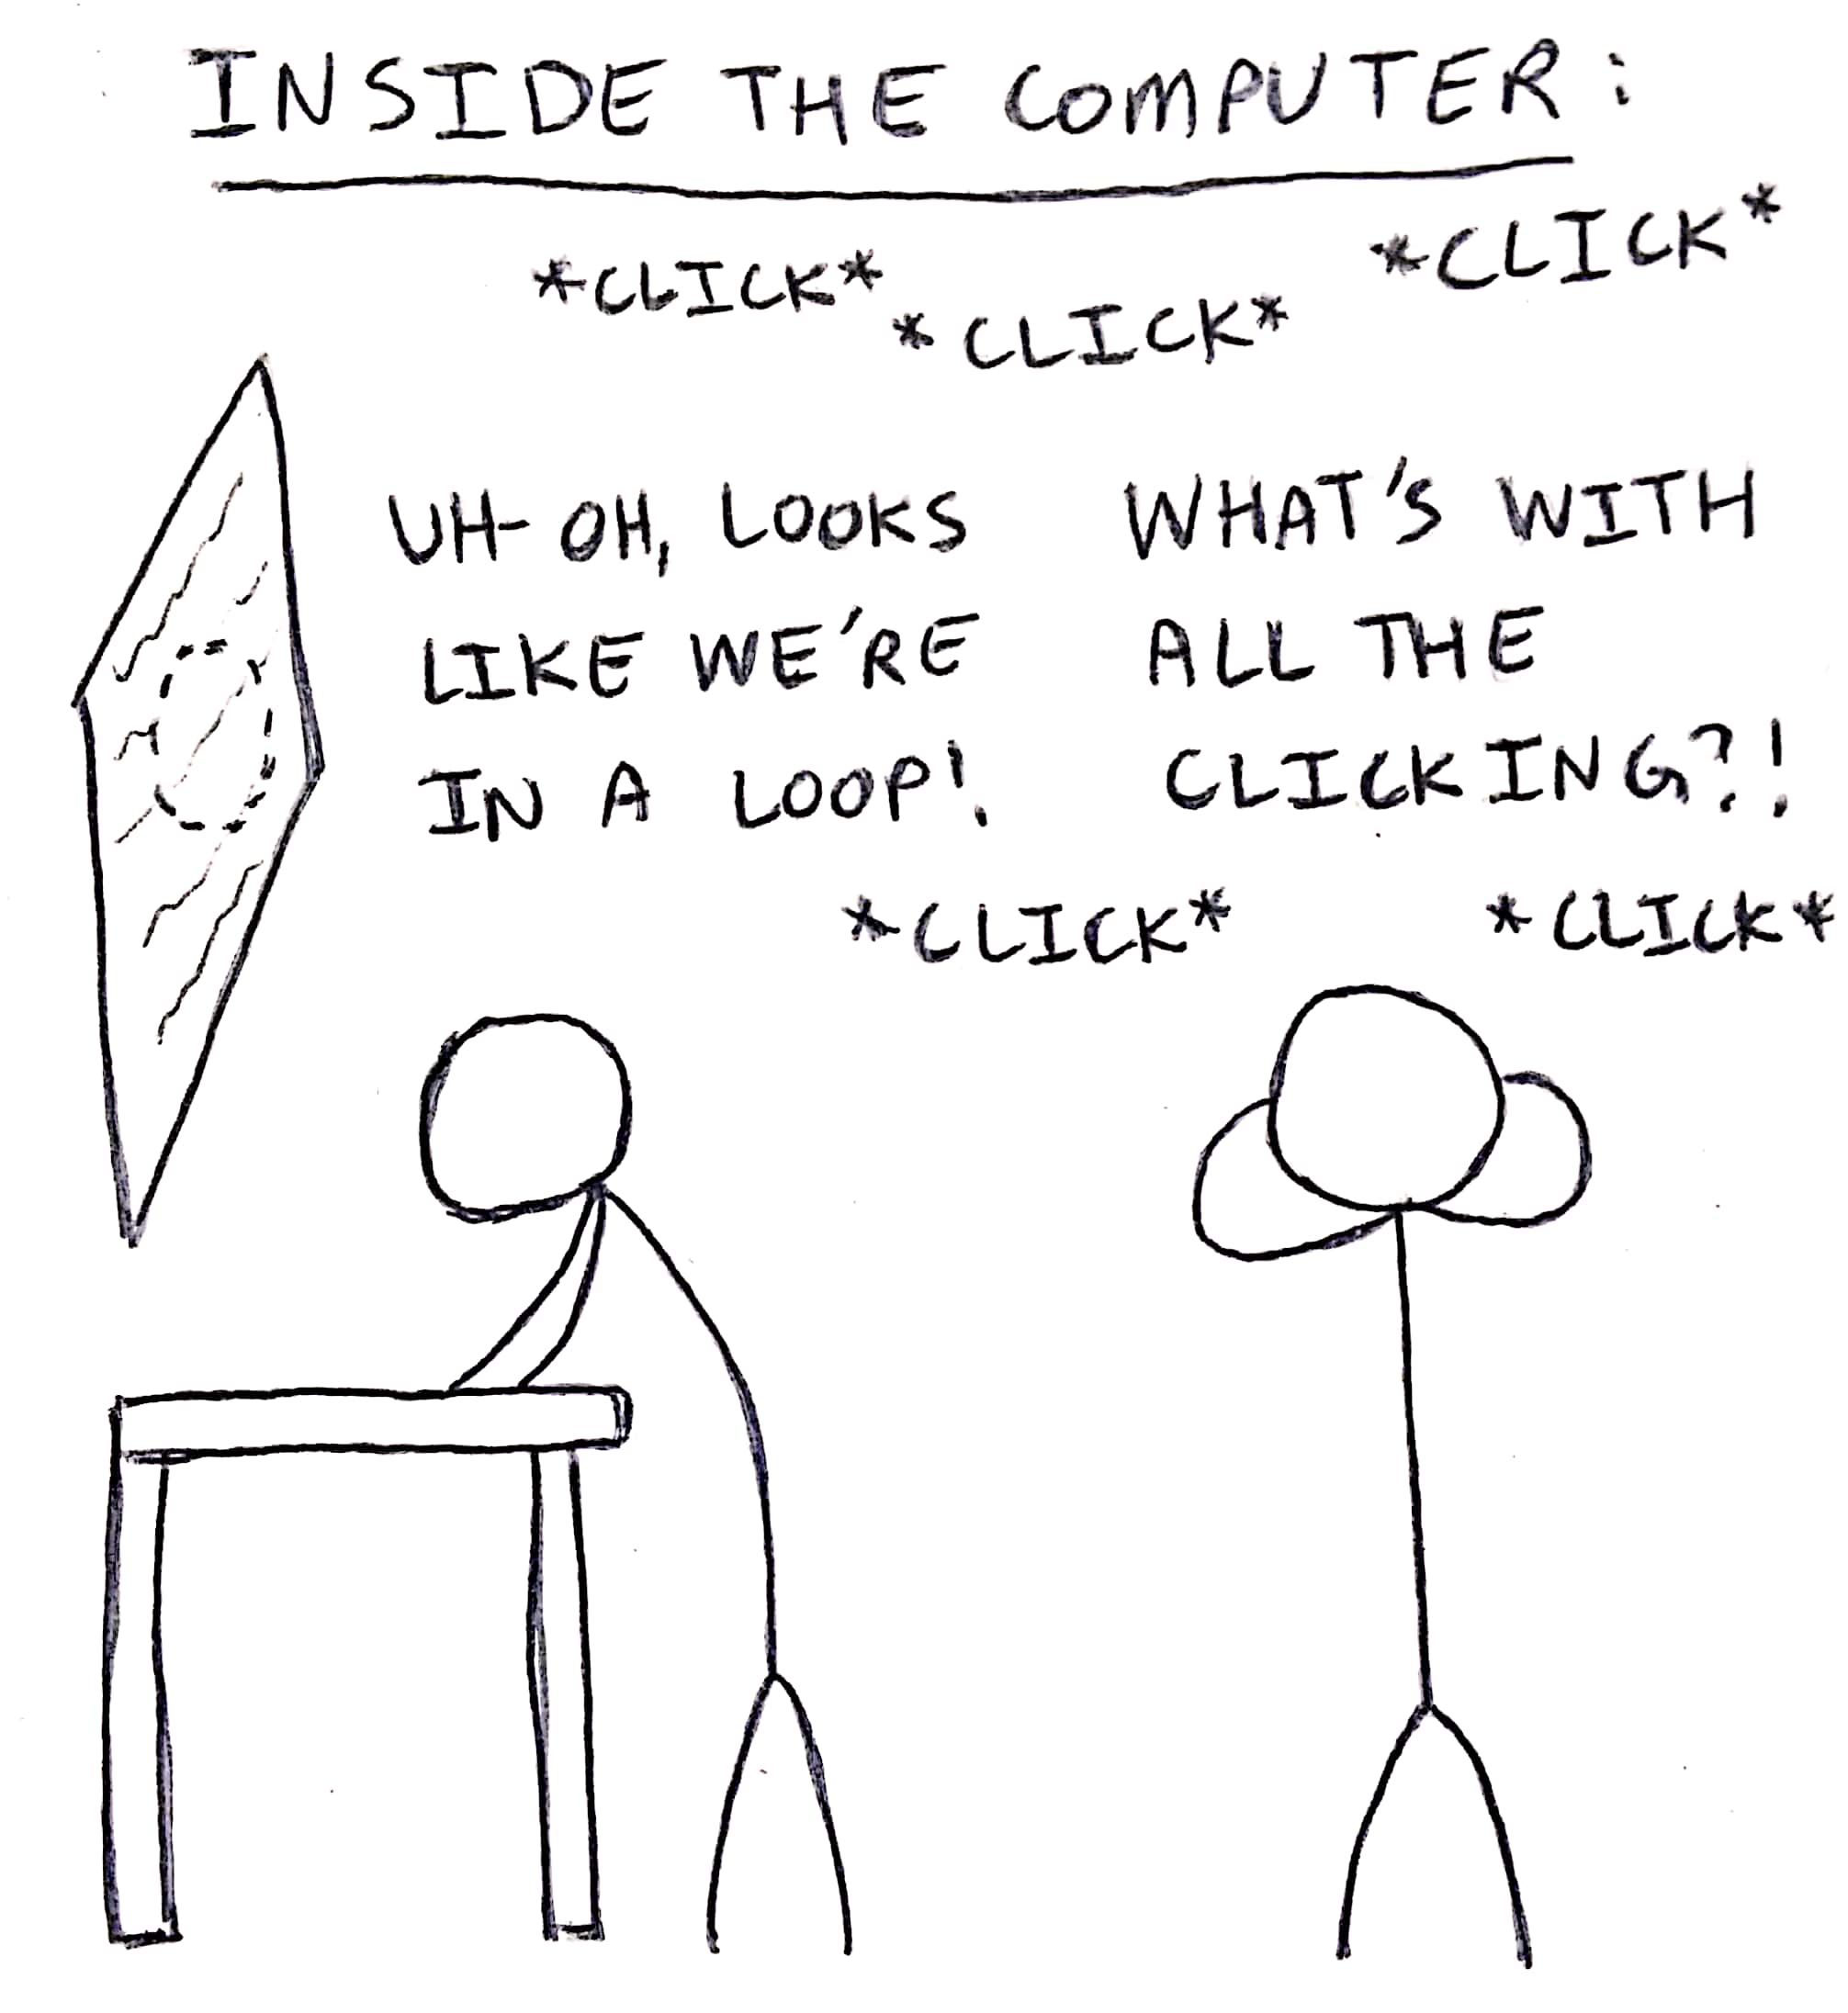 INSIDE THE COMPUTER:
*CLICK*
*CLICK*
*CLICK*
UH-OH, LOOKS
LIKE WE'RE
IN A LOOP!
WHAT'S WITH
ALL THE
CLICKING?!
*CLICK*
*CLICK*